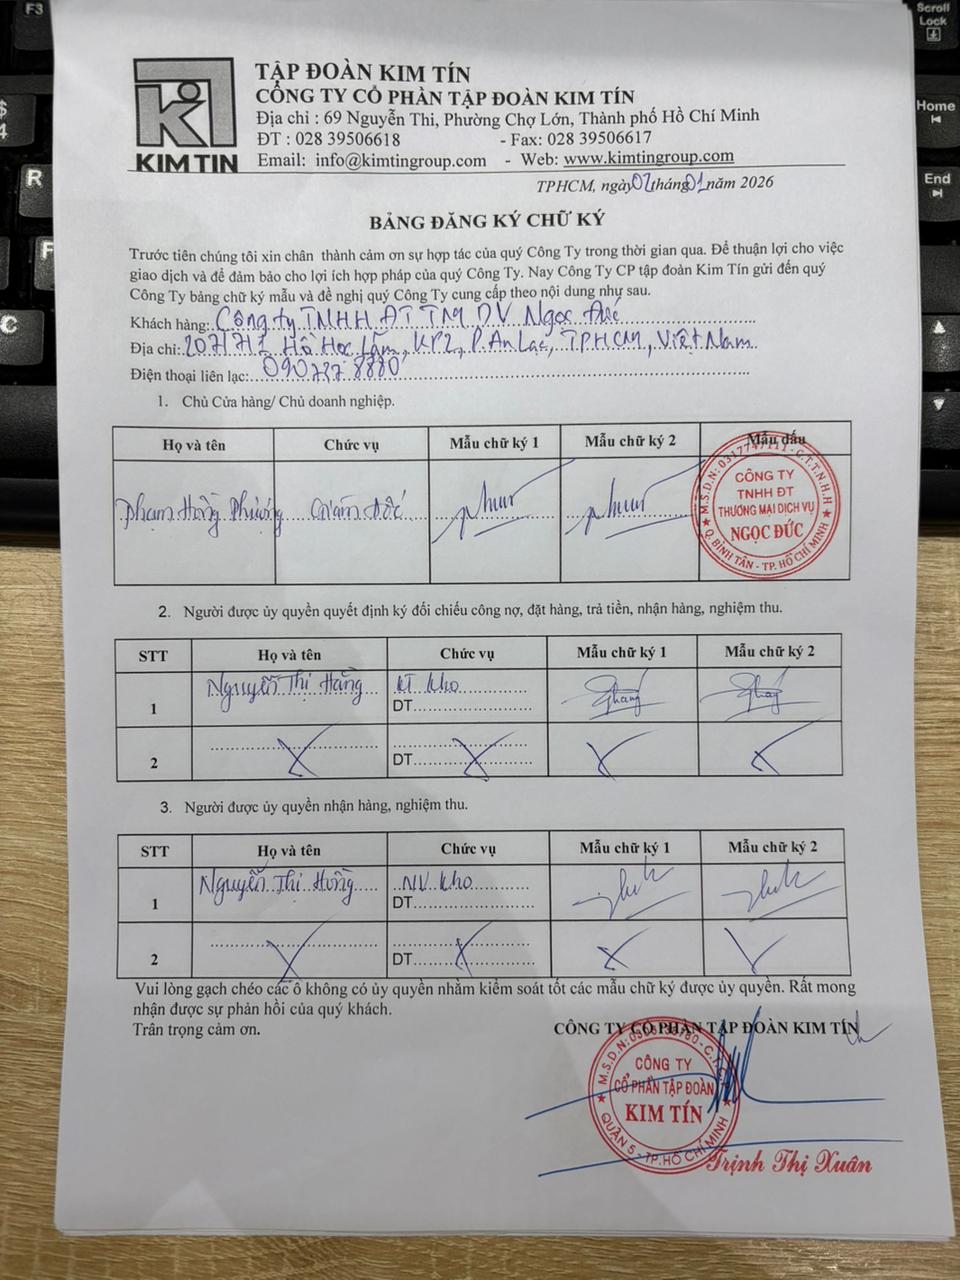 F3
Scroll
Lock
$
4
Home
R
End
F
C
KIM TIN
TẬP ĐOÀN KIM TÍN
CÔNG TY CỔ PHẦN TẬP ĐOÀN KIM TÍN
Địa chỉ : 69 Nguyễn Thi, Phường Chợ Lớn, Thành phố Hồ Chí Minh
ĐT : 028 39506618 - Fax: 028 39506617
Email: info@kimtingroup.com - Web: www.kimtingroup.com
TPHCM, ngày 02 tháng 01 năm 2026
BẢNG ĐĂNG KÝ CHỮ KÝ
Trước tiên chúng tôi xin chân thành cảm ơn sự hợp tác của quý Công Ty trong thời gian qua. Để thuận lợi cho việc
giao dịch và để đảm bảo cho lợi ích hợp pháp của quý Công Ty. Nay Công Ty CP tập đoàn Kim Tín gửi đến quý
Công Ty bảng chữ ký mẫu và đề nghị quý Công Ty cung cấp theo nội dung như sau.
Khách hàng: Công ty TNHH ĐT TM DV Ngọc Đức
Địa chỉ: Hồ Học Lãm, KP2, P. An Lạc, TPHCM, Việt Nam
Điện thoại liên lạc: 090737 8880
1. Chủ Cửa hàng/ Chủ doanh nghiệp.
Họ và tên Chức vụ Mẫu chữ ký 1 Mẫu chữ ký 2 Mẫu dấu
Phạm Hồng Phượng Giám đốc
M.S.D.N: - C.T.T.N.H.H
CÔNG TY
TNHH ĐT
THƯƠNG MẠI DỊCH VỤ
NGỌC ĐỨC
Q. BÌNH TÂN - TP. HỒ CHÍ MINH
2. Người được ủy quyền quyết định ký đối chiếu công nợ, đặt hàng, trả tiền, nhận hàng, nghiệm thu.
STT Họ và tên Chức vụ Mẫu chữ ký 1 Mẫu chữ ký 2
1 Nguyễn Thị Hằng KT Kho
DT
2 DT
3. Người được ủy quyền nhận hàng, nghiệm thu.
STT Họ và tên Chức vụ Mẫu chữ ký 1 Mẫu chữ ký 2
1 Nguyễn Thị Hồng NV Kho
DT
2 DT
Vui lòng gạch chéo các ô không có ủy quyền nhằm kiểm soát tốt các mẫu chữ ký được ủy quyền. Rất mong
nhận được sự phản hồi của quý khách.
Trân trọng cảm ơn.
CÔNG TY CỔ PHẦN TẬP ĐOÀN KIM TÍN
CÔNG TY
CỔ PHẦN TẬP ĐOÀN
KIM TÍN
QUẬN 5 - TP. HỒ CHÍ MINH
Trịnh Thị Xuân